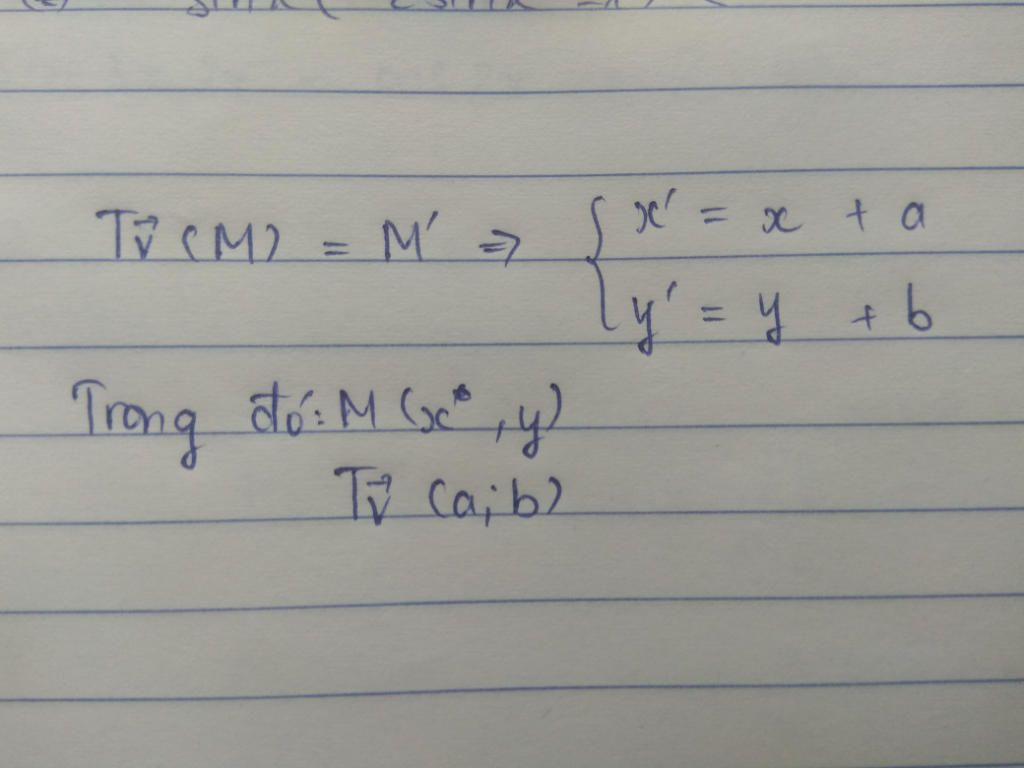 T_v⃗ (M) = M' ⇒ { x' = x + a
y' = y + b
Trong đó: M (x , y)
T_v⃗ (a; b)